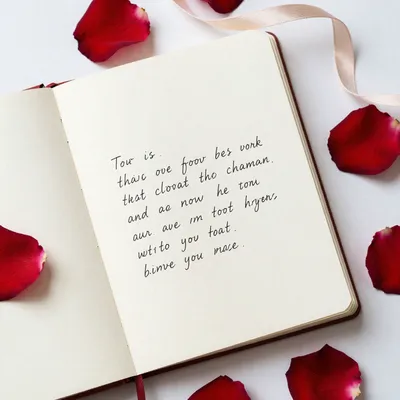 Tow is.
thaic ove foov bes vork
that cloeat the chaman.
and ao now he tou
aur ave i'm toot hryens
witito you toat.
binve you mace.